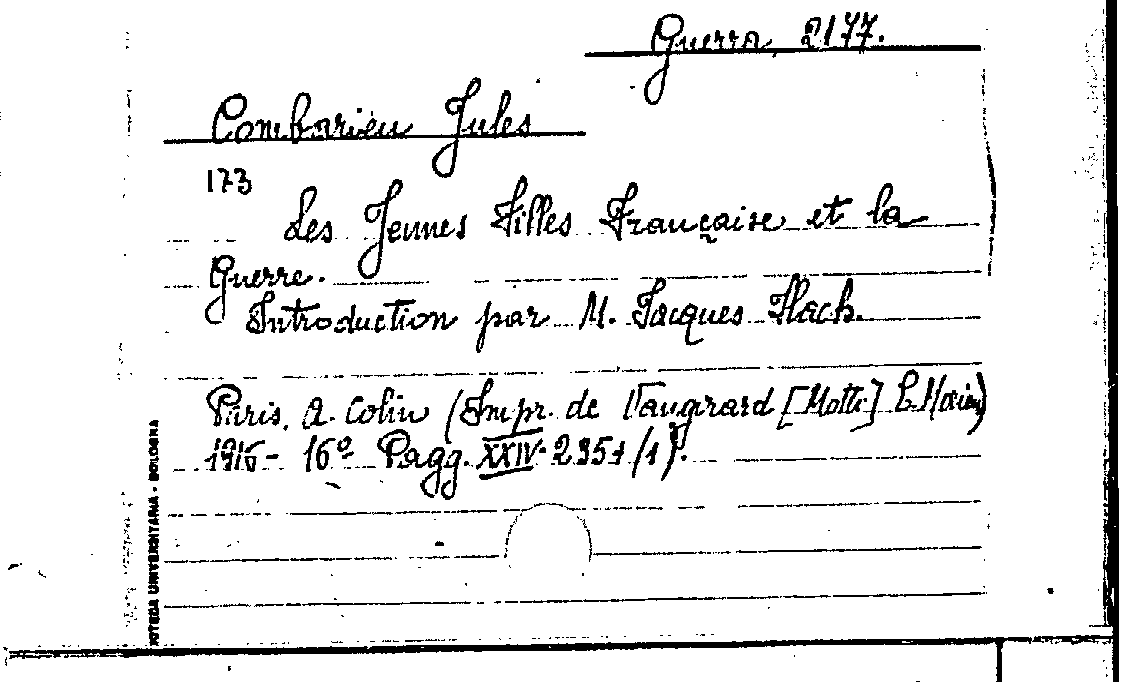 Guerra, 2177.
Combarieu Jules
173
Les Jeunes Filles Française et la
Guerre.
Introduction par M. Jacques Flach.
Paris, A. Colin (Impr. de Vaugirard [Motti]
16º Pagg. XXIV-
BIOTECA UNIVERSITARIA - BOLOGNA